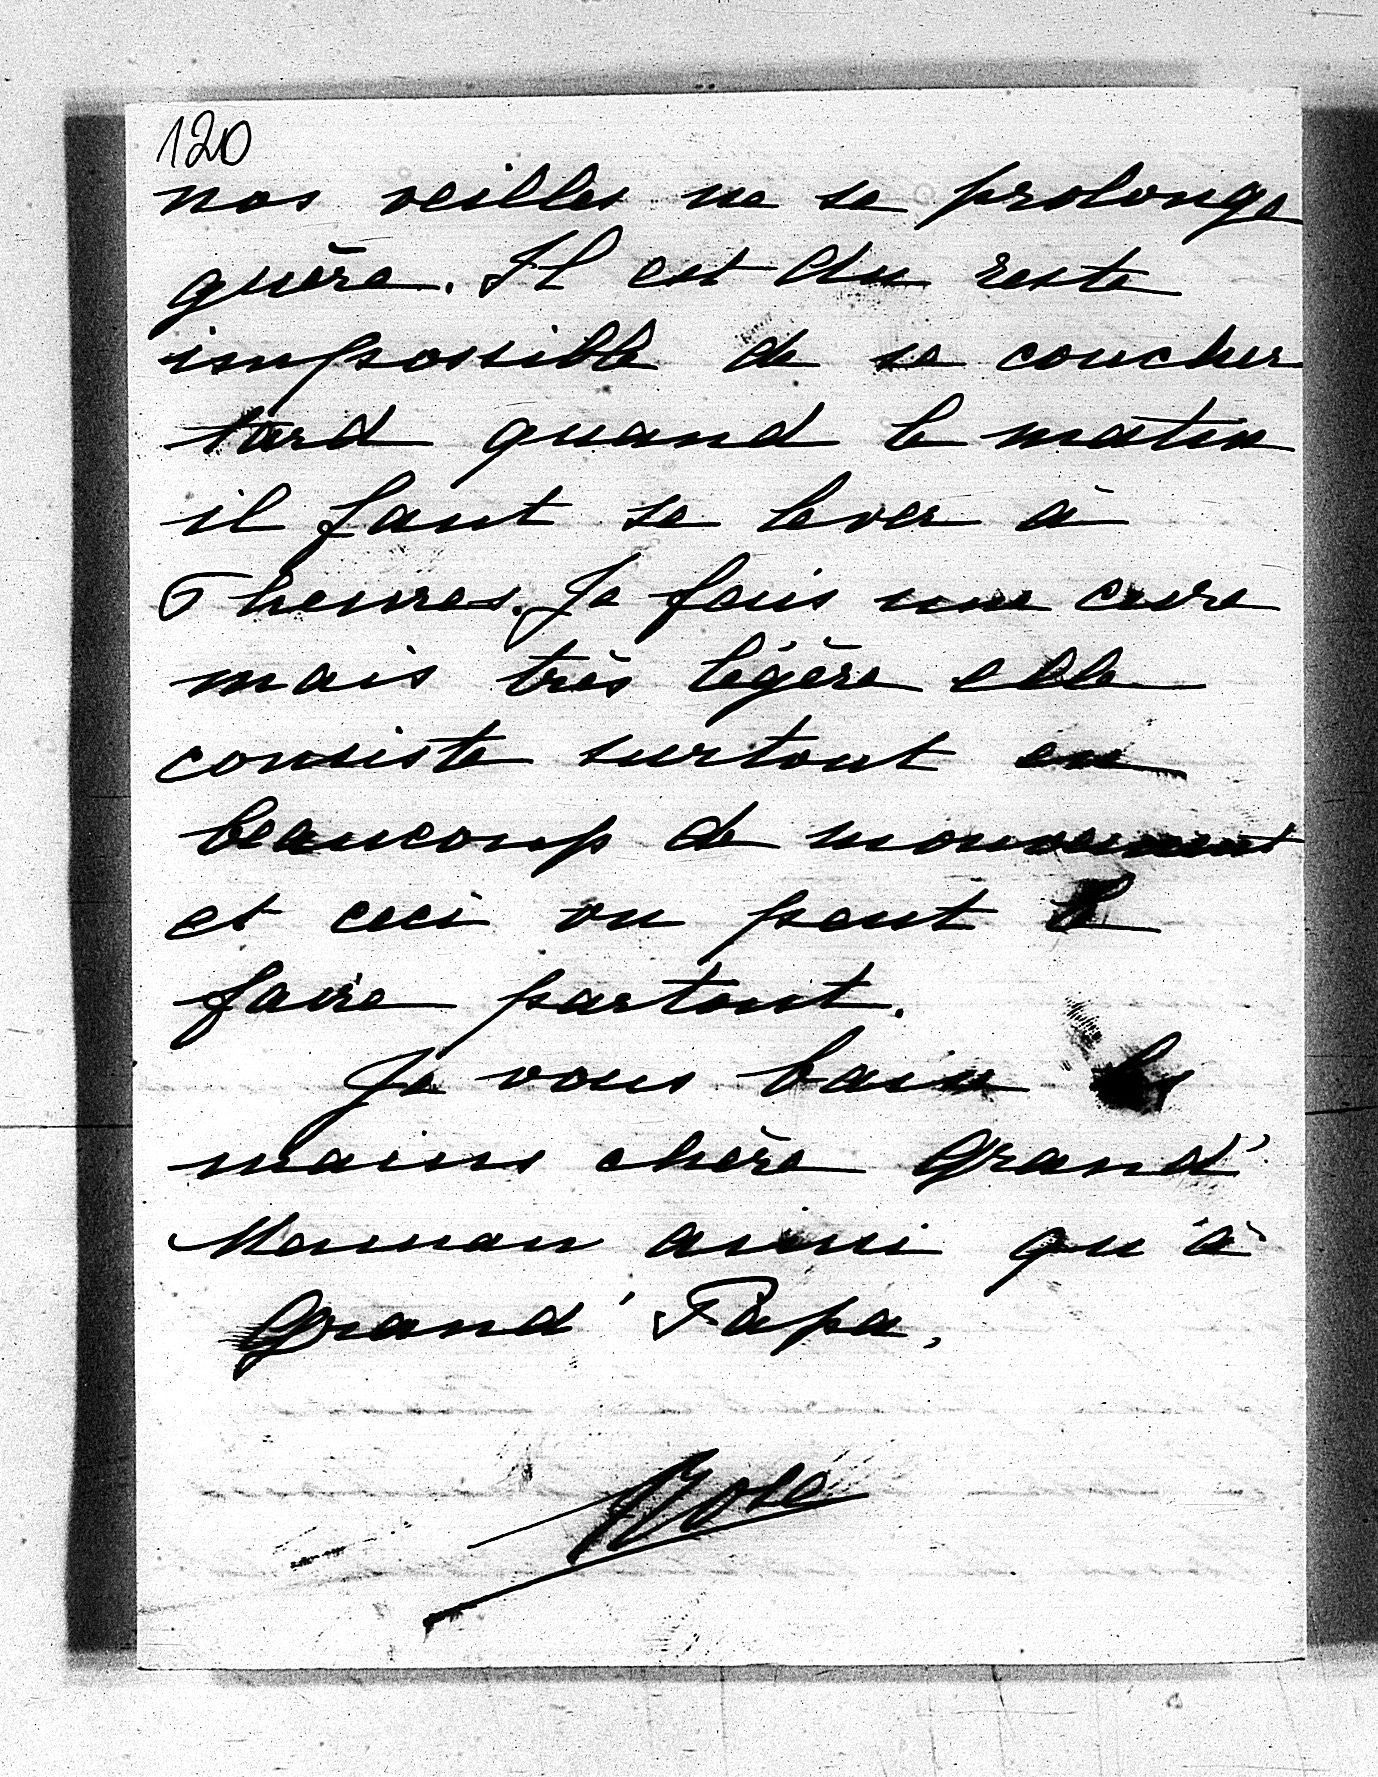 120
nos veilles ne se prolonge
guère. Il est du reste
impossible de se coucher
tard quand le matin
il faut se lever à
6 heures. Je fais une cure
mais très légère elle
consiste surtout en
beaucoup de mouvement
et ceci on peut le
faire partout.
Je vous baise les
mains chère Grand'
Maman ainsi qu'à
Grand' Papa.